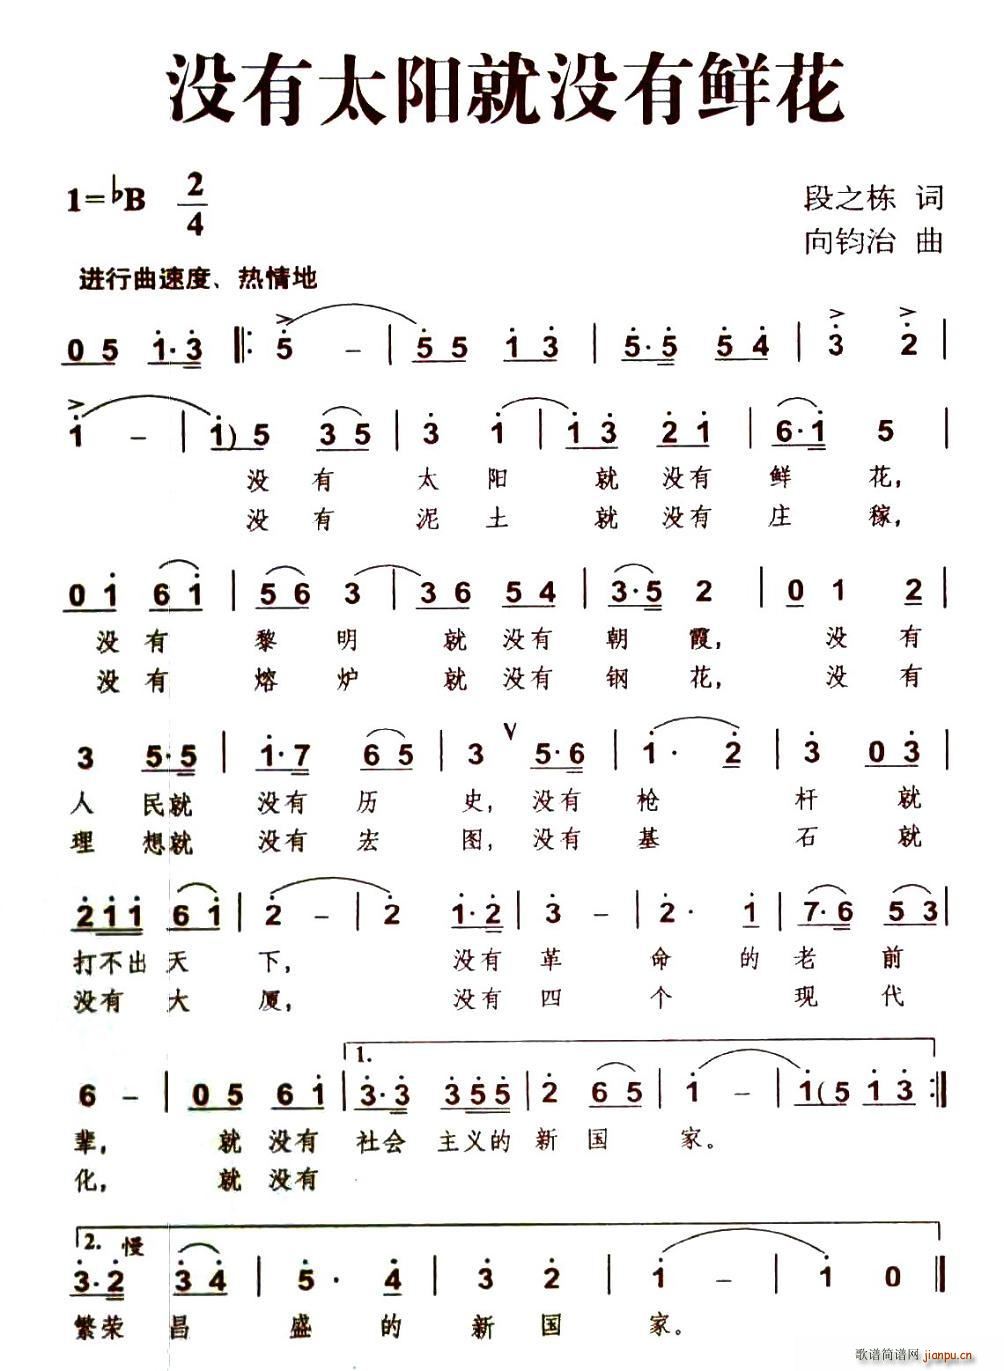 没有太阳就没有鲜花
1=♭B 2/4
段之栋 词
向钧治 曲
进行曲速度、热情地
0 5 1·3 ‖: 5 – | 5 5 1 3 | 5·5 5 4 | 3 2 |
1 – | 1) 5 3 5 | 3 1 | 1 3 2 1 | 6·1 5 |
没 有 太 阳 就 没有 鲜 花，
没 有 泥 土 就 没有 庄 稼，
0 1 6 1 | 5 6 3 | 3 6 5 4 | 3·5 2 | 0 1 2 |
没 有 黎 明 就 没有 朝 霞， 没 有
没 有 熔 炉 就 没有 钢 花， 没 有
3 5·5 | 1·7 6 5 | 3 V 5·6 | 1· 2 | 3 0 3 |
人 民就 没有 历 史，没有 枪 杆 就
理 想就 没有 宏 图，没有 基 石 就
2 1 1 6 1 | 2 – | 2 1·2 | 3 – | 2· 1 | 7·6 5 3 |
打不出 天 下， 没有 革 命 的 老 前
没有 大 厦， 没有 四 个 现 代
1.
6 – | 0 5 6 1 | 3·3 3 5 5 | 2 6 5 | 1 – | 1 (5 1 3 :‖
辈， 就 没有 社会 主义的 新 国 家。
化， 就 没有
2. 慢
3·2 3 4 | 5· 4 | 3 2 | 1 – | 1 0 ‖
繁荣 昌 盛 的 新 国 家。
歌谱简谱网
jianpu.cn